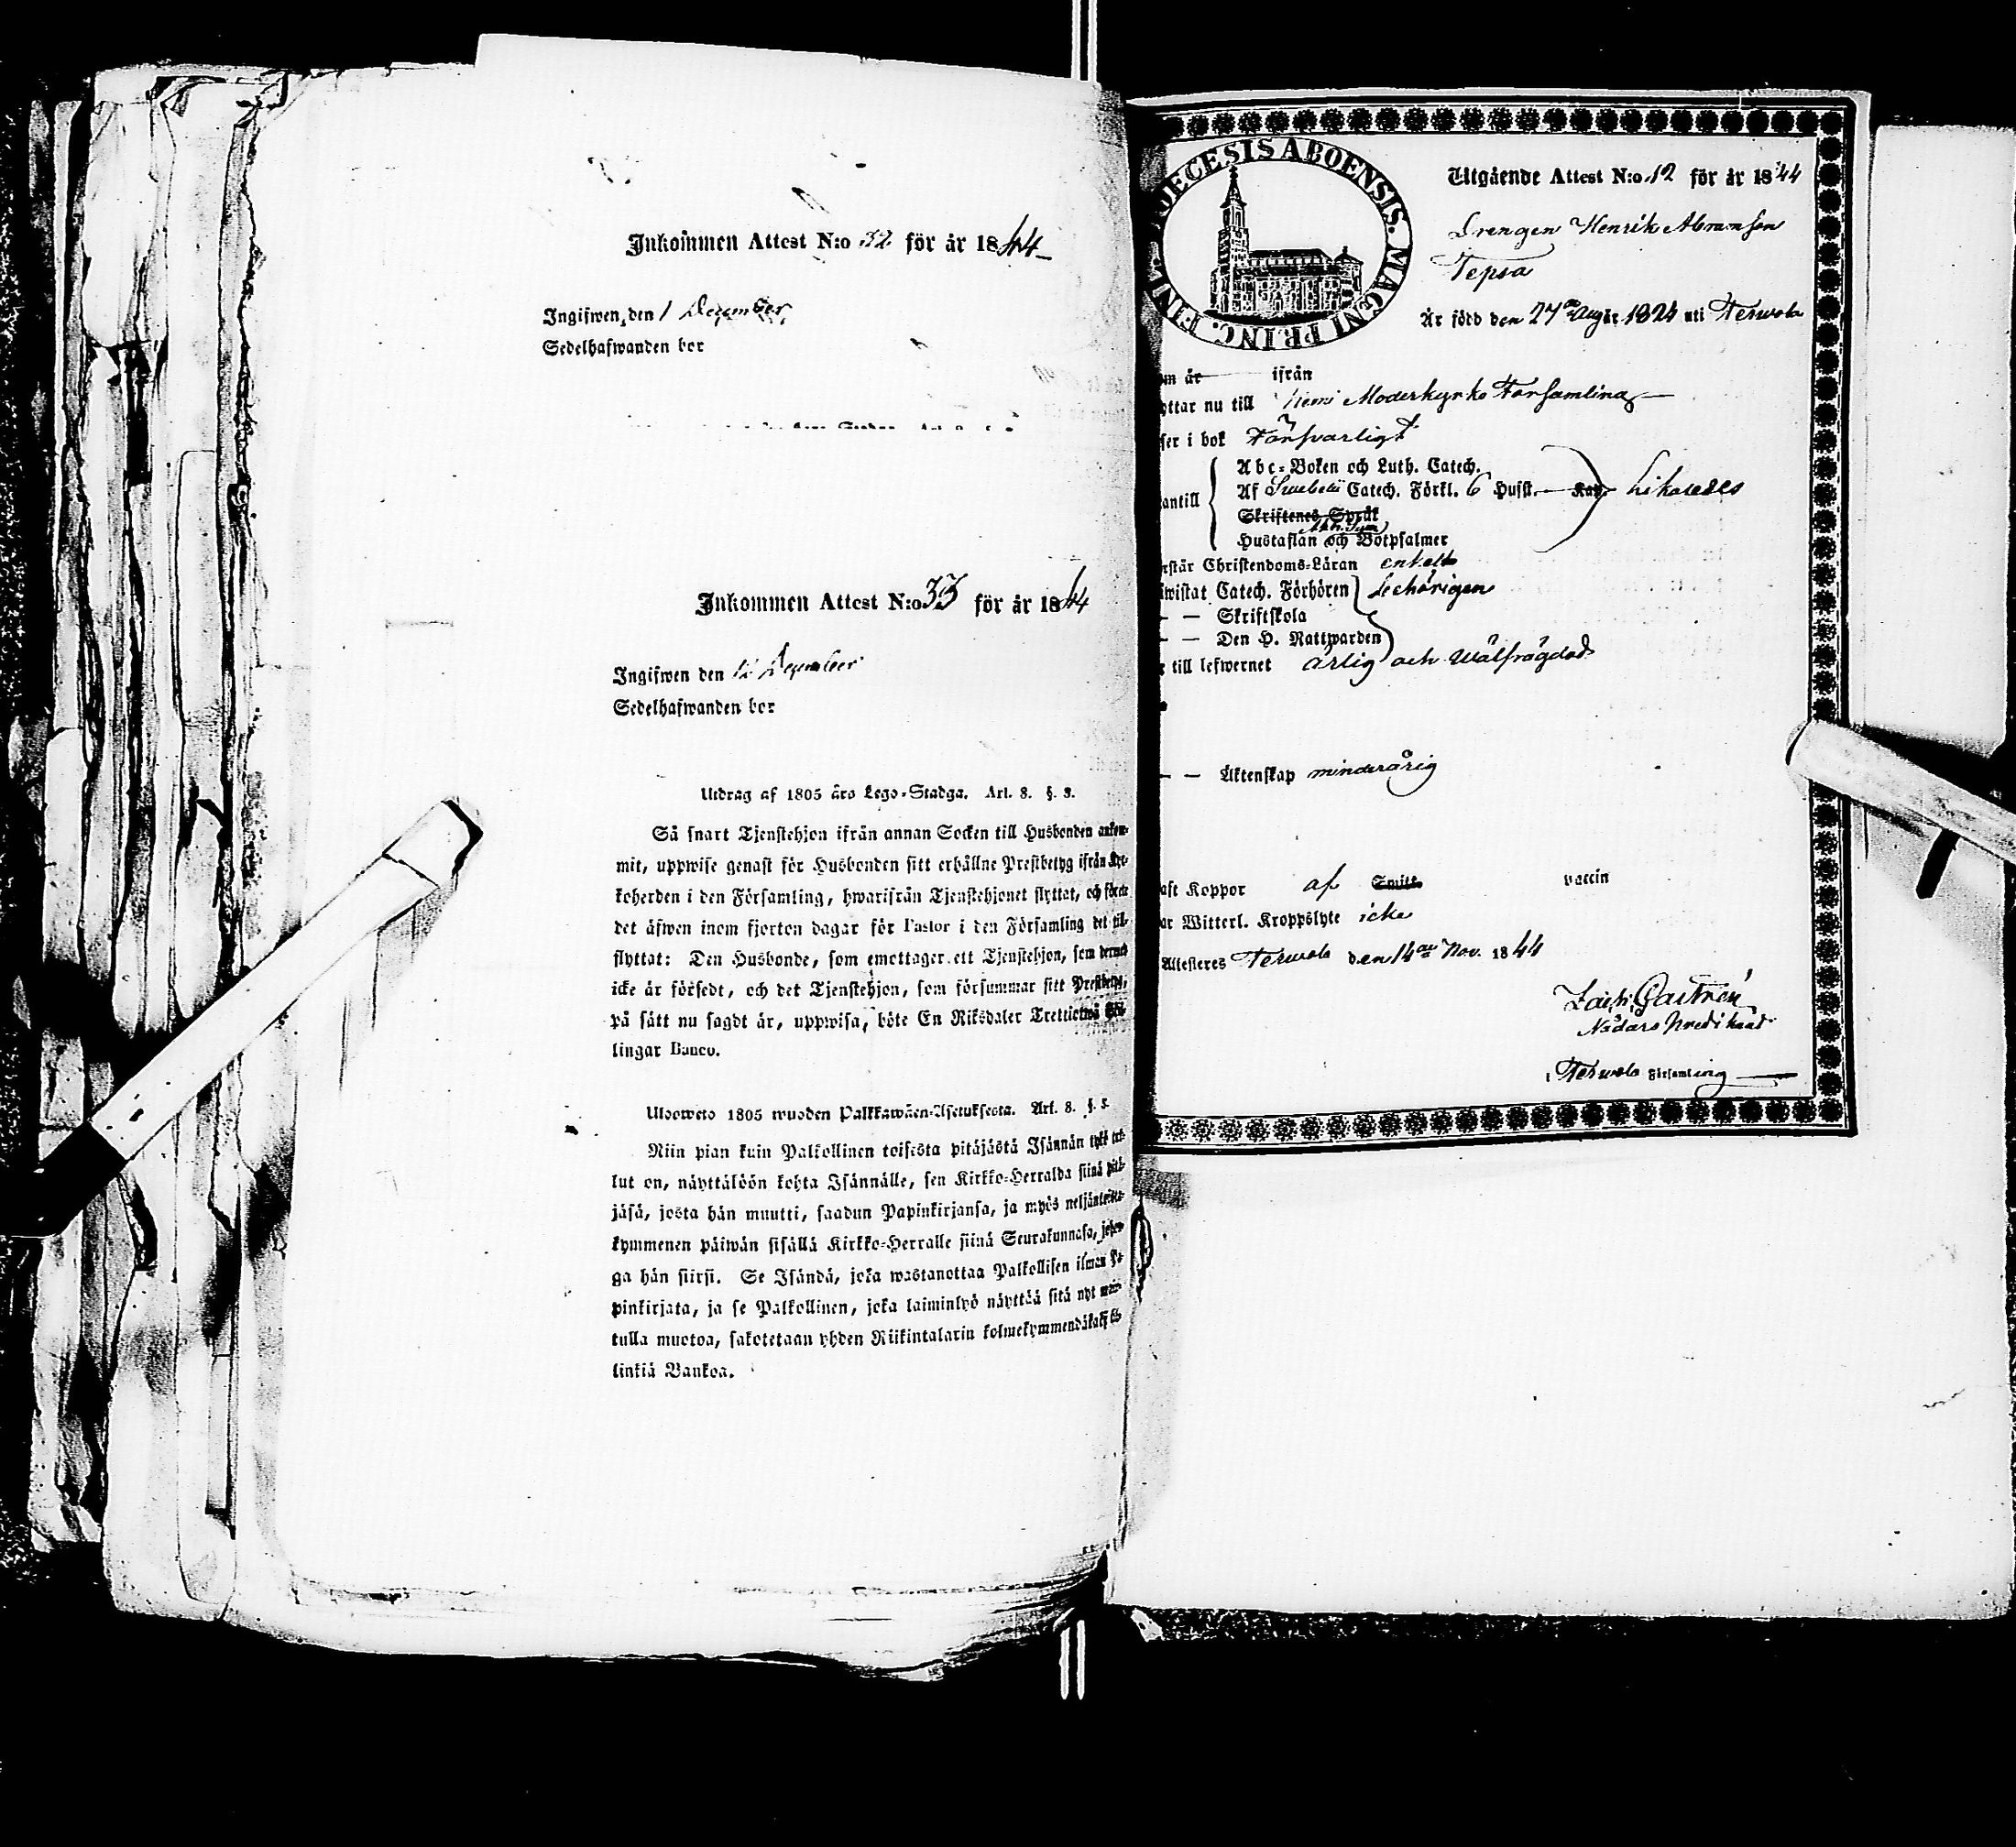 Inkommen Attest N:o 32 för år 1844
Ingifwen den 1 December
Sedelhafwanden bor
Inkommen Attest N:o 33 för år 1844
Ingifwen den 12 December
Sedelhafwanden bor
Utdrag af 1805 års Lego-Stadga. Art. 8. §. 3.
Så snart Tjenstehjon ifrån annan Socken till Husbonden ankom-
mit, uppwise genast för Husbonden sitt erhållne Prestbetyg ifrån Kyr-
koherden i den Församling, hwarifrån Tjenstehjonet flyttat, och förete
det äfwen inom fjorton dagar för Pastor i den Församling det till-
flyttat: Den Husbonde, som emottager ett Tjenstehjon, som dermed
icke är försedt, och det Tjenstehjon, som försummar sitt Prestbetyg,
på sätt nu sagdt är, uppwisa, böte En Riksdaler Trettiotwå Skil-
lingar Banco.
Ulosweto 1805 wuoden Palkkawäen-Asetuksesta. Art. 8. §. 3.
Niin pian kuin Palkollinen toisesta pitäjästä Isännän tykö tul-
lut on, näyttäköön kohta Isännälle, sen Kirkko-Herralda siinä pitä-
jäsä, josta hän muutti, saadun Papinkirjansa, ja myös neljäntoista-
kymmenen päiwän sisällä Kirkko-Herralle siinä Seurakunnasa, johon-
ga hän siirsi. Se Isändä, joka wastanottaa Palkollisen ilman Pa-
pinkirjata, ja se Palkollinen, joka laiminlyö näyttää sitä nyt main-
tulla muotoa, sakotetaan yhden Riikintalarin kolmekymmendäkaksi kil-
linkiä Bankoa.
DIŒCESIS ABOENSIS. MAGNI PRINC. FINL.
Utgående Attest N:o 12 för år 1844
Drengen Henrik Abramson
Tepsa
Är född den 27de Aug år 1824 uti Terwola
om år ifrån
yttar nu till Kemi Moderkyrko Församling
ser i bok Försvarligt
Abc-Boken och Luth. Catech.
antill Af Swebelii Catech. Förkl. 6 Hufst. Kap. Likaledes
Skriftenes Språk
Ath. Sym
Hustaflan och Botpsalmer
rstår Christendoms-Läran enkelt
iwistat Catech. Förhören behörigen
— — Skriftskola
— — Den H. Nattwarden
r till lefwernet ärlig och wälfrägdad
— — Äktenskap minderårig
aft Koppor af Smitt. vaccin
ar Witterl. Kroppslyte icke
Attesteres Terwola den 14de Nov. 1844
Zach. Castrén
Nådårs Predikant
i Terwola Församling